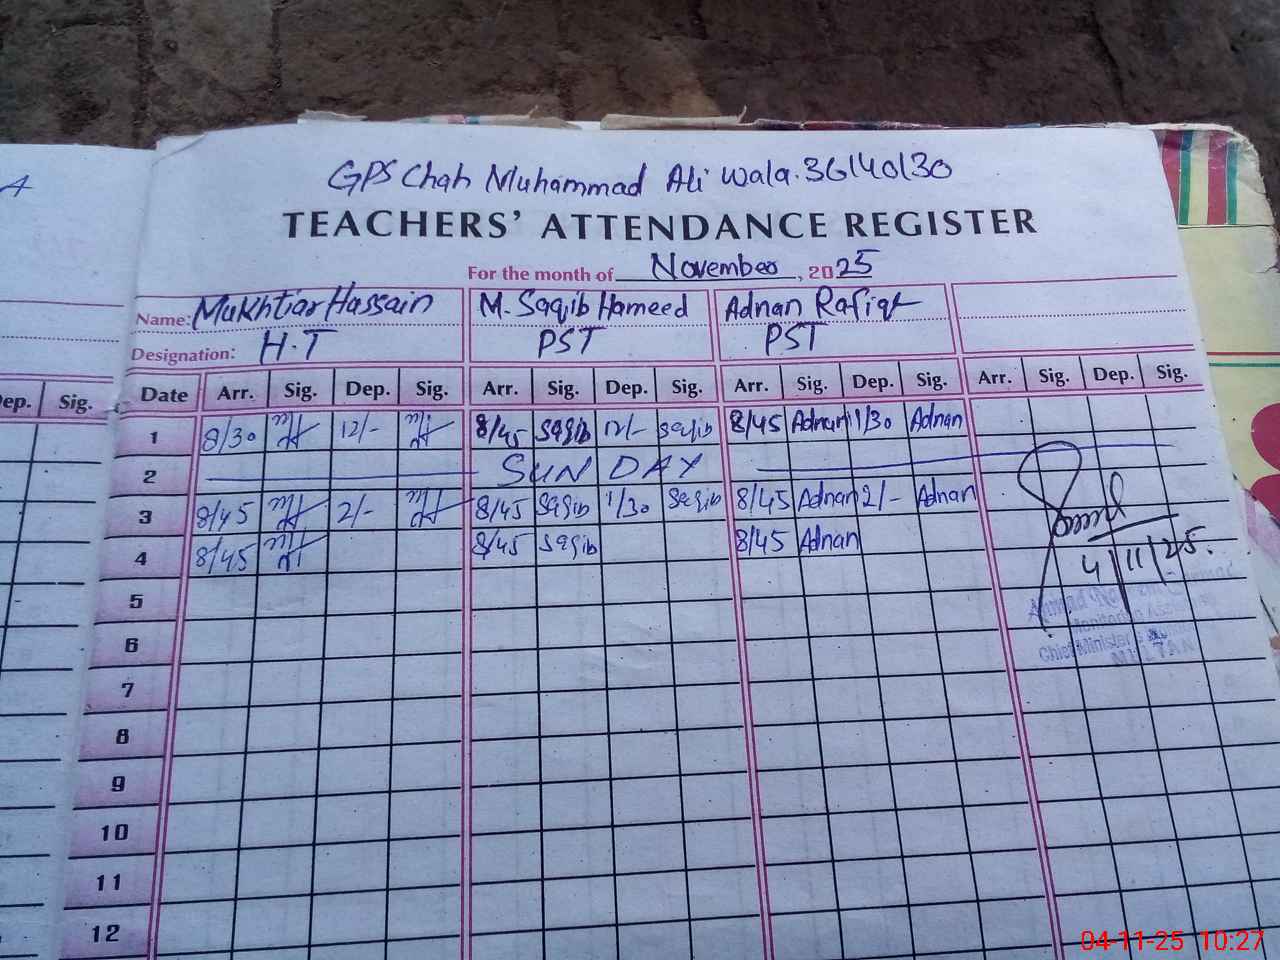 A
GPS Chah Muhammad Ali Wala. 36140130
TEACHERS' ATTENDANCE REGISTER
For the month of November, 2025
Name: Mukhtiar Hassain M. Saqib Hameed Adnan Rafiqe
Designation: H.T PST PST
ep. Sig. Date Arr. Sig. Dep. Sig. Arr. Sig. Dep. Sig. Arr. Sig. Dep. Sig. Arr. Sig. Dep. Sig.
1 8/30 12/- 8/45 Saqib 12/- Saqib 8/45 Adnan 1/30 Adnan
2 SUNDAY
3 8/45 2/- 8/45 Saqib 1/30 Saqib 8/45 Adnan 2/- Adnan
4 8/45 8/45 Saqib 8/45 Adnan
4/11/25.
5
Ahmad
6
Monitoring
Chief Minister's
7
MULTAN
8
9
10
11
12
04-11-25 10:27